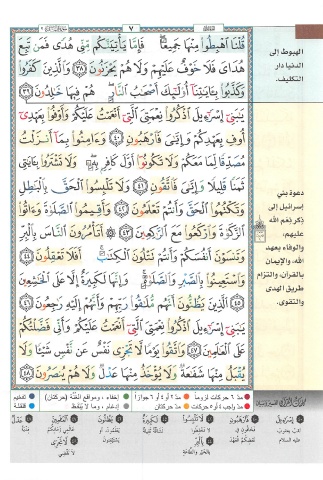 ٧
قُلْنَا اهْبِطُوا مِنْهَا جَمِيعًا فَإِمَّا يَأْتِيَنَّكُم مِّنِّي هُدًى فَمَن تَبِعَ
هُدَايَ فَلَا خَوْفٌ عَلَيْهِمْ وَلَا هُمْ يَحْزَنُونَ ٣٨ وَالَّذِينَ كَفَرُوا
وَكَذَّبُوا بِآيَاتِنَا أُولَٰئِكَ أَصْحَابُ النَّارِ هُمْ فِيهَا خَالِدُونَ ٣٩
يَا بَنِي إِسْرَائِيلَ اذْكُرُوا نِعْمَتِيَ الَّتِي أَنْعَمْتُ عَلَيْكُمْ وَأَوْفُوا بِعَهْدِي
أُوفِ بِعَهْدِكُمْ وَإِيَّايَ فَارْهَبُونِ ٤٠ وَآمِنُوا بِمَا أَنزَلْتُ
مُصَدِّقًا لِّمَا مَعَكُمْ وَلَا تَكُونُوا أَوَّلَ كَافِرٍ بِهِ وَلَا تَشْتَرُوا بِآيَاتِي
ثَمَنًا قَلِيلًا وَإِيَّايَ فَاتَّقُونِ ٤١ وَلَا تَلْبِسُوا الْحَقَّ بِالْبَاطِلِ
وَتَكْتُمُوا الْحَقَّ وَأَنتُمْ تَعْلَمُونَ ٤٢ وَأَقِيمُوا الصَّلَاةَ وَآتُوا
الزَّكَاةَ وَارْكَعُوا مَعَ الرَّاكِعِينَ ٤٣ أَتَأْمُرُونَ النَّاسَ بِالْبِرِّ
وَتَنسَوْنَ أَنفُسَكُمْ وَأَنتُمْ تَتْلُونَ الْكِتَابَ أَفَلَا تَعْقِلُونَ ٤٤
وَاسْتَعِينُوا بِالصَّبْرِ وَالصَّلَاةِ وَإِنَّهَا لَكَبِيرَةٌ إِلَّا عَلَى الْخَاشِعِينَ
٤٥ الَّذِينَ يَظُنُّونَ أَنَّهُم مُّلَاقُو رَبِّهِمْ وَأَنَّهُمْ إِلَيْهِ رَاجِعُونَ ٤٦
يَا بَنِي إِسْرَائِيلَ اذْكُرُوا نِعْمَتِيَ الَّتِي أَنْعَمْتُ عَلَيْكُمْ وَأَنِّي فَضَّلْتُكُمْ
عَلَى الْعَالَمِينَ ٤٧ وَاتَّقُوا يَوْمًا لَّا تَجْزِي نَفْسٌ عَن نَّفْسٍ شَيْئًا وَلَا
يُقْبَلُ مِنْهَا شَفَاعَةٌ وَلَا يُؤْخَذُ مِنْهَا عَدْلٌ وَلَا هُمْ يُنصَرُونَ ٤٨
الهبوط إلى
الدنيا دار
التكليف.
دعوة بني
إسرائيل إلى
ذكر نعم الله
عليهم،
والوفاء بعهد
الله، والإيمان
بالقرآن، والتزام
طريق الهدى
والتقوى.
مدّ ٦ حركات لزوماً مدّ ٢ أو ٤ أو ٦ جوازاً إخفاء، ومواقع الغُنَّة (حركتان) تفخيم
مدّ واجب ٤ أو ٥ حركات مدّ حركتان إدغام، وما لا يُلفظ قلقلة